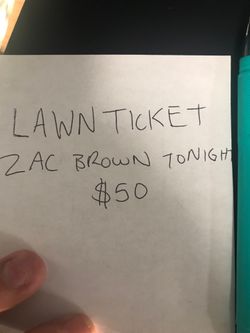 LAWN TICKET
ZAC BROWN TONIGHT
$50